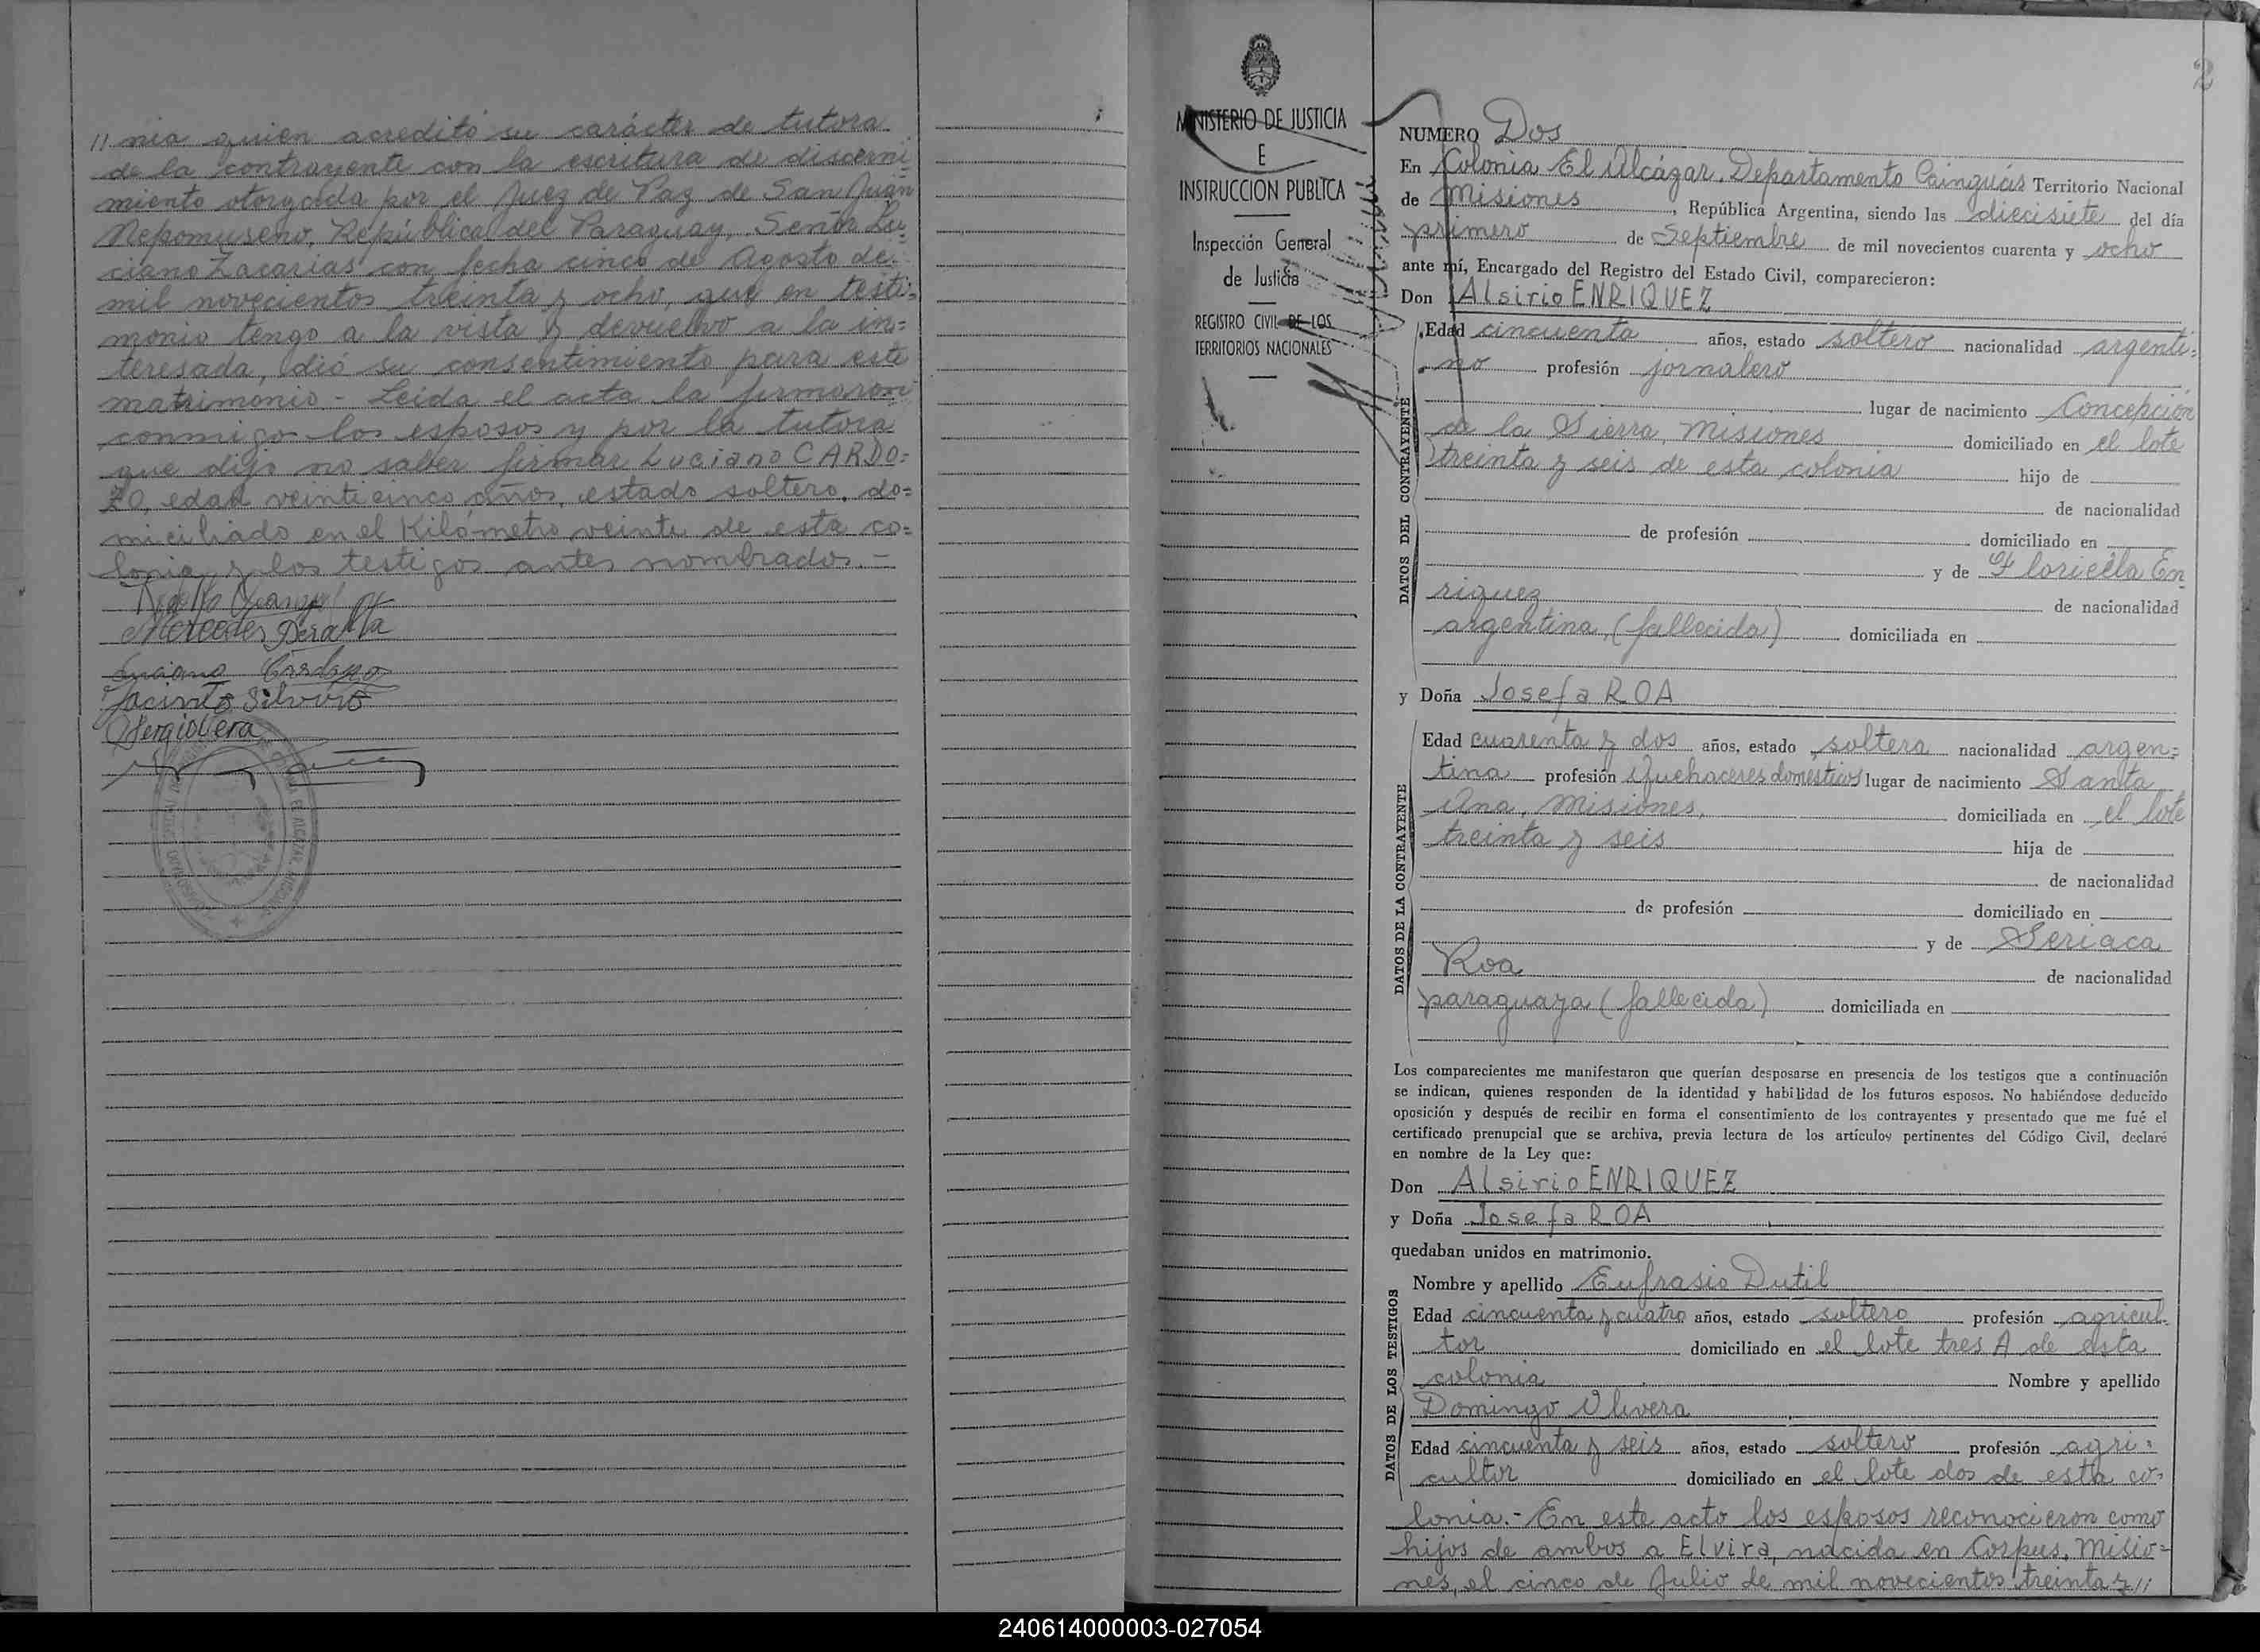 // nia quien acreditó su carácter de tutora
de la contrayente con la escritura de discerni=
miento otorgada por el Juez de Paz de San Juan
Nepomuseno, República del Paraguay, Señor Lu=
ciano Zacarias con fecha cinco de Agosto de
mil novecientos treinta y ocho, que en testi=
monio tengo a la vista y devuelvo a la in=
teresada, dió su consentimiento para este
matrimonio - Leída el acta la firmaron
conmigo los esposos y por la tutora
que dijo no saber firmar Luciano CARDO=
ZO, edad veinticinco años, estado soltero, do=
miciliado en el Kilómetro veinte de esta co=
lonia y los testigos antes nombrados.-
Mercedes Peralta
Luciano Cardozo
Jacinto Silverio
Sergio Vera
2
MINISTERIO DE JUSTICIA
E
INSTRUCCION PUBLICA
Inspección General
de Justicia
REGISTRO CIVIL DE LOS
TERRITORIOS NACIONALES
NUMERO Dos
En Colonia El Alcázar, Departamento Cainguás Territorio Nacional
de Misiones, República Argentina, siendo las diecisiete del día
primero de Septiembre de mil novecientos cuarenta y ocho
ante mí, Encargado del Registro del Estado Civil, comparecieron:
Don Alsirio ENRIQUEZ
DATOS DEL CONTRAYENTE
Edad cincuenta años, estado soltero nacionalidad argenti=
no profesión jornalero
lugar de nacimiento Concepción
de la Sierra, Misiones domiciliado en el lote
treinta y seis de esta colonia hijo de
de nacionalidad
de profesión domiciliado en
y de Floriella En
riquez de nacionalidad
argentina, (fallecida) domiciliada en
y Doña Josefa ROA
DATOS DE LA CONTRAYENTE
Edad cuarenta y dos años, estado soltera nacionalidad argen=
tina profesión Quehaceres domésticos lugar de nacimiento Santa
Ana, Misiones, domiciliada en el lote
treinta y seis hija de
de nacionalidad
de profesión domiciliado en
y de Seriaca
Roa de nacionalidad
paraguaya (fallecida) domiciliada en
Los comparecientes me manifestaron que querían desposarse en presencia de los testigos que a continuación
se indican, quienes responden de la identidad y habilidad de los futuros esposos. No habiéndose deducido
oposición y después de recibir en forma el consentimiento de los contrayentes y presentado que me fué el
certificado prenupcial que se archiva, previa lectura de los artículos pertinentes del Código Civil, declaré
en nombre de la Ley que:
Don Alsirio ENRIQUEZ
y Doña Josefa ROA
quedaban unidos en matrimonio.
DATOS DE LOS TESTIGOS
Nombre y apellido Eufrasio Dutil
Edad cincuenta y cuatro años, estado soltero profesión agricul-
tor domiciliado en el lote tres A de esta
colonia Nombre y apellido
Domingo Olivera
Edad cincuenta y seis años, estado soltero profesión agri=
cultor domiciliado en el lote dos de esta co=
lonia.- En este acto los esposos reconocieron como
hijos de ambos a Elvira, nacida en Corpus, Misio=
nes, el cinco de Julio de mil novecientos treinta y //
240614000003-027054